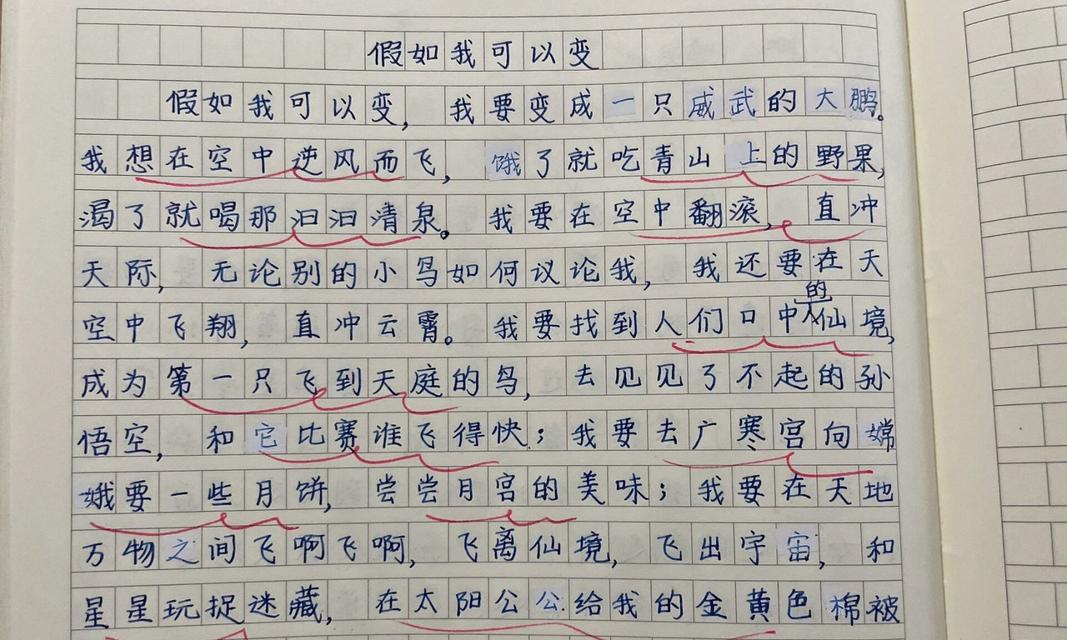 假如我可以变
假如我可以变，我要变成一只威武的大鹏。
我想在空中逆风而飞，饿了就吃青山上的野果，
渴了就喝那汩汩清泉。我要在空中翻滚，直冲
天际，无论别的小鸟如何议论我，我还要在天
空中飞翔，直冲云霄。我要找到人们口中的仙境，
成为第一只飞到天庭的鸟，去见见了不起的孙
悟空，和它比赛谁飞得快；我要去广寒宫向嫦
娥要一些月饼，尝尝月宫的美味；我要在天地
万物之间飞啊飞啊，飞离仙境，飞出宇宙，和
星星玩捉迷藏，在太阳公公给我的金黄色棉被